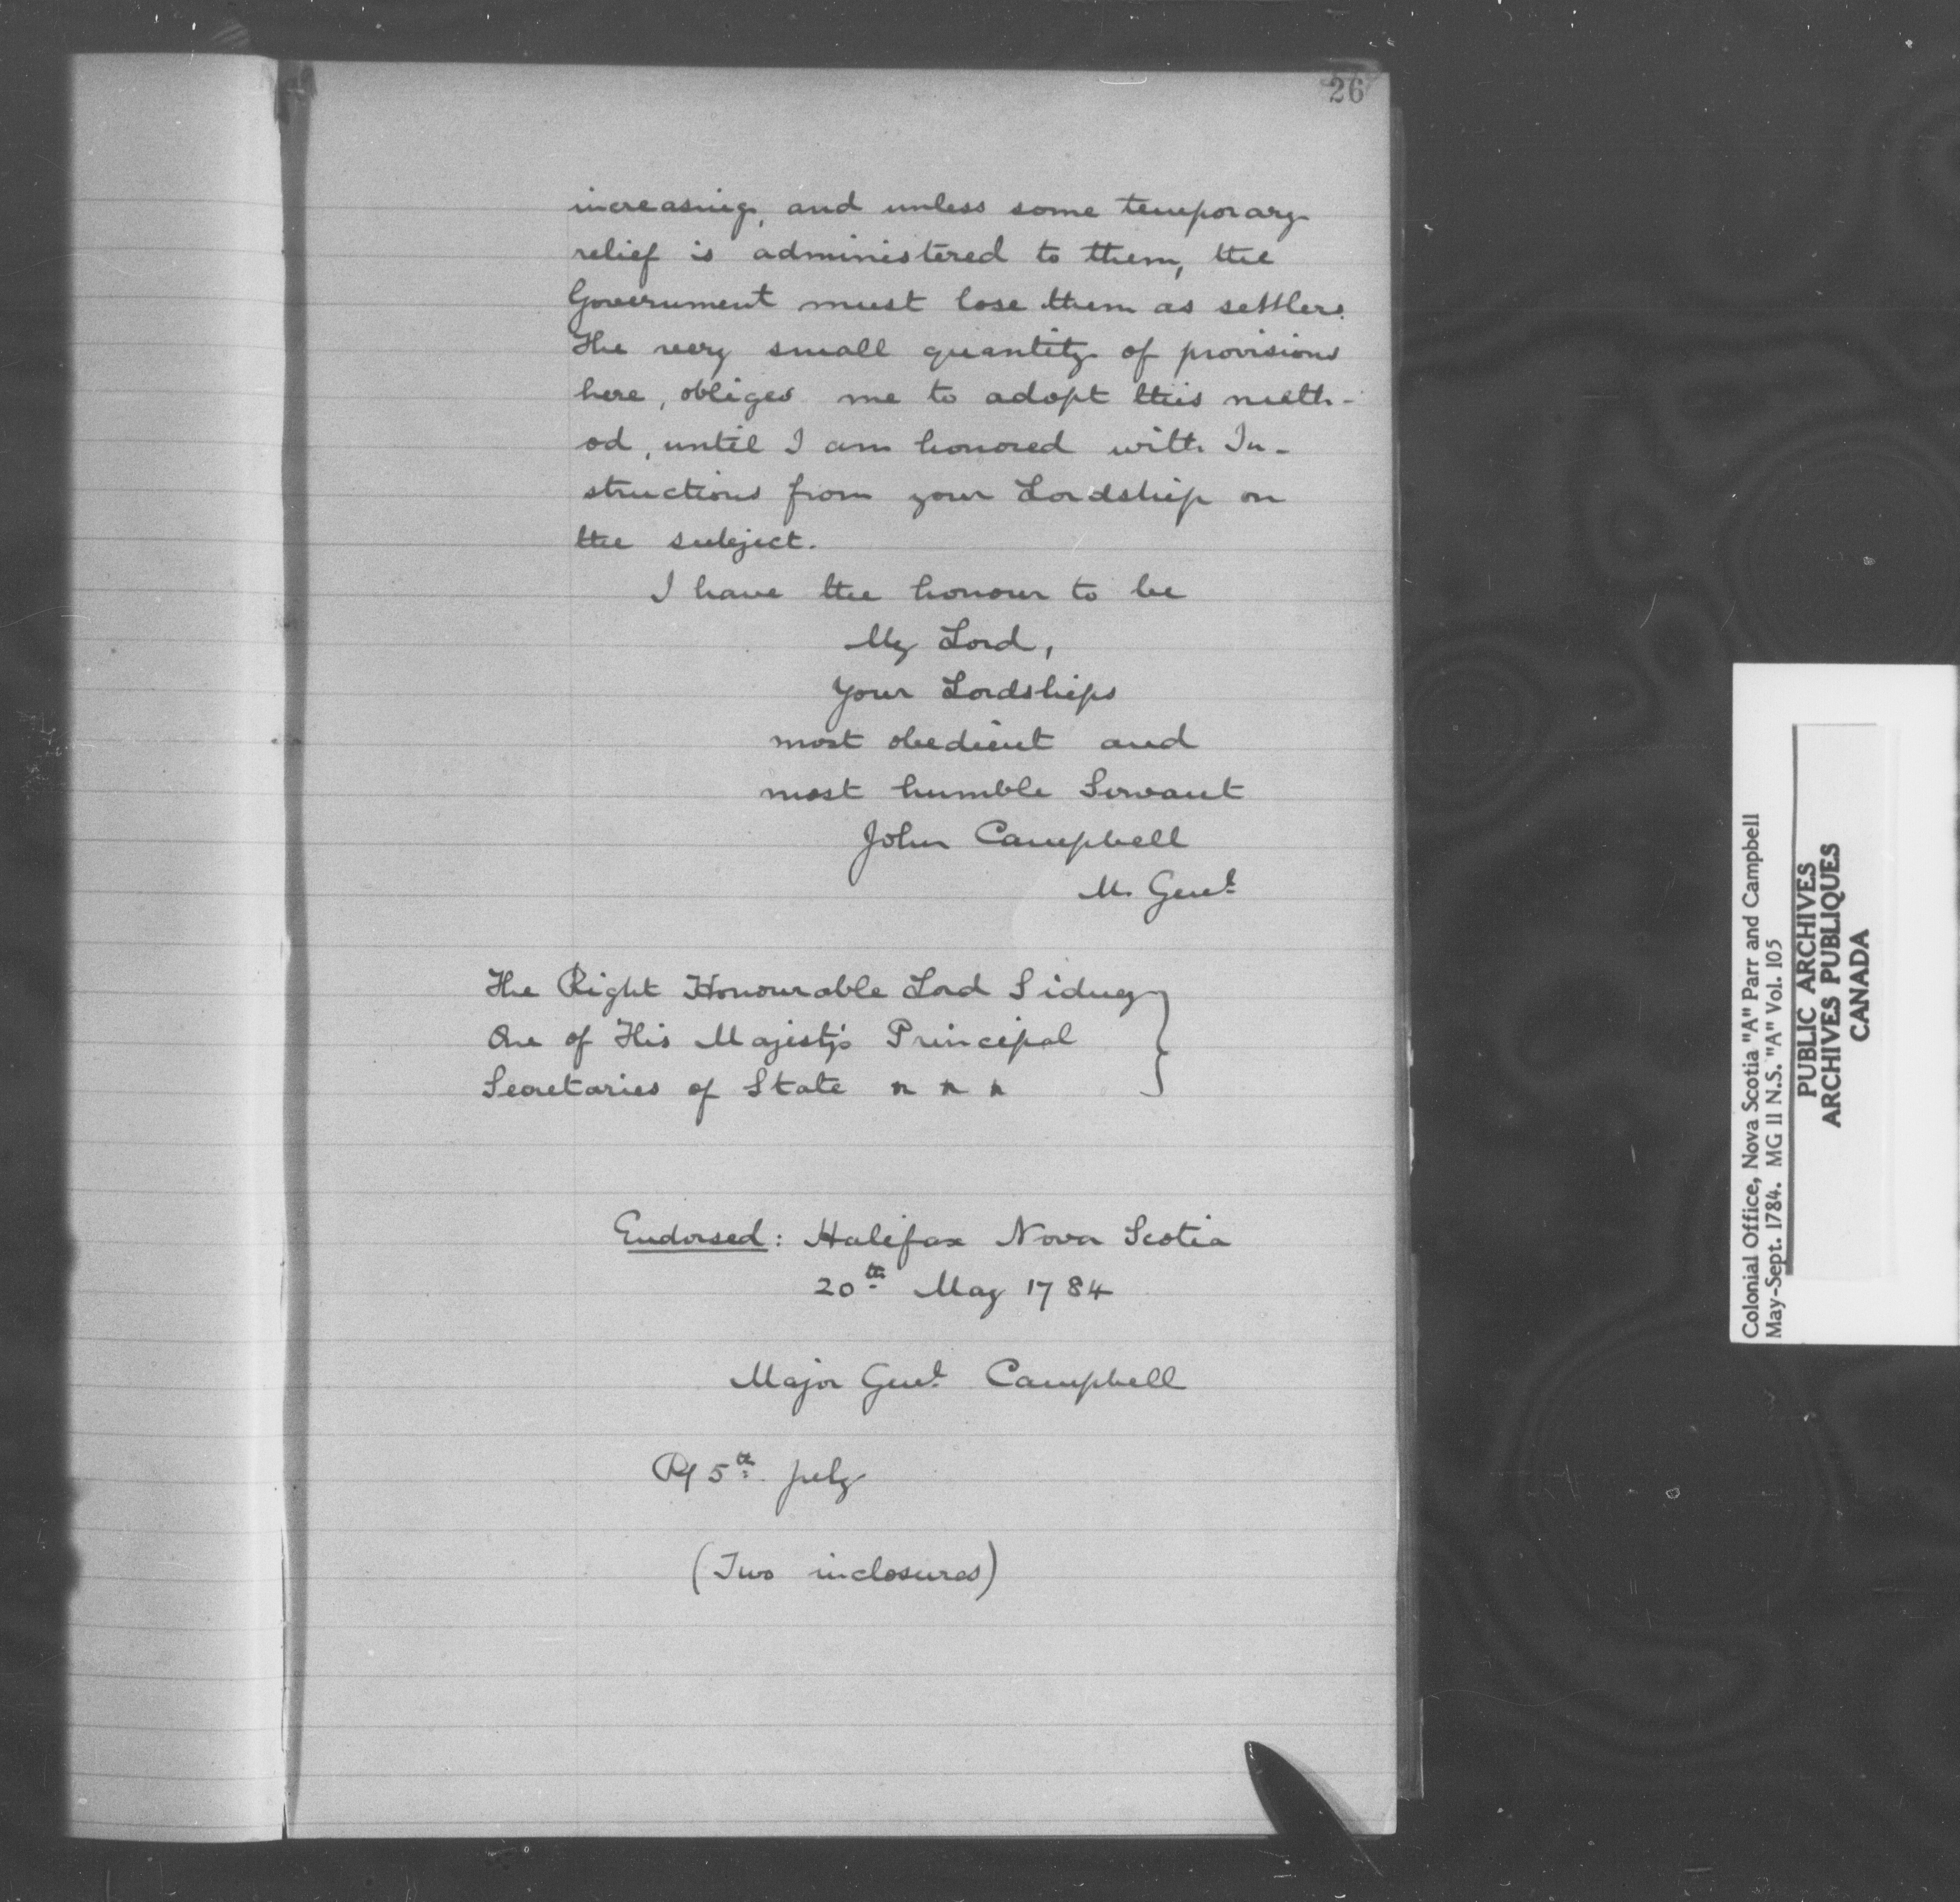 26
increasing, and unless some temporary
relief is administered to them, the
Government must lose them as settlers.
The very small quantity of provisions
here, obliges me to adopt this meth-
od, until I am honored with In-
structions from your Lordship on
the subject.
I have the honour to be
My Lord,
Your Lordships
most obedient and
most humble Servant
John Campbell
M. Genl.
The Right Honourable Lord Sidney
One of His Majesty's Principal
Secretaries of State
Endorsed: Halifax Nova Scotia
20th May 1784
Major Genl. Campbell
R/ 5th July
(Two inclosures)
Colonial Office, Nova Scotia "A" Parr and Campbell
May-Sept. 1784. MG 11 N.S. "A" Vol. 105
PUBLIC ARCHIVES
ARCHIVES PUBLIQUES
CANADA